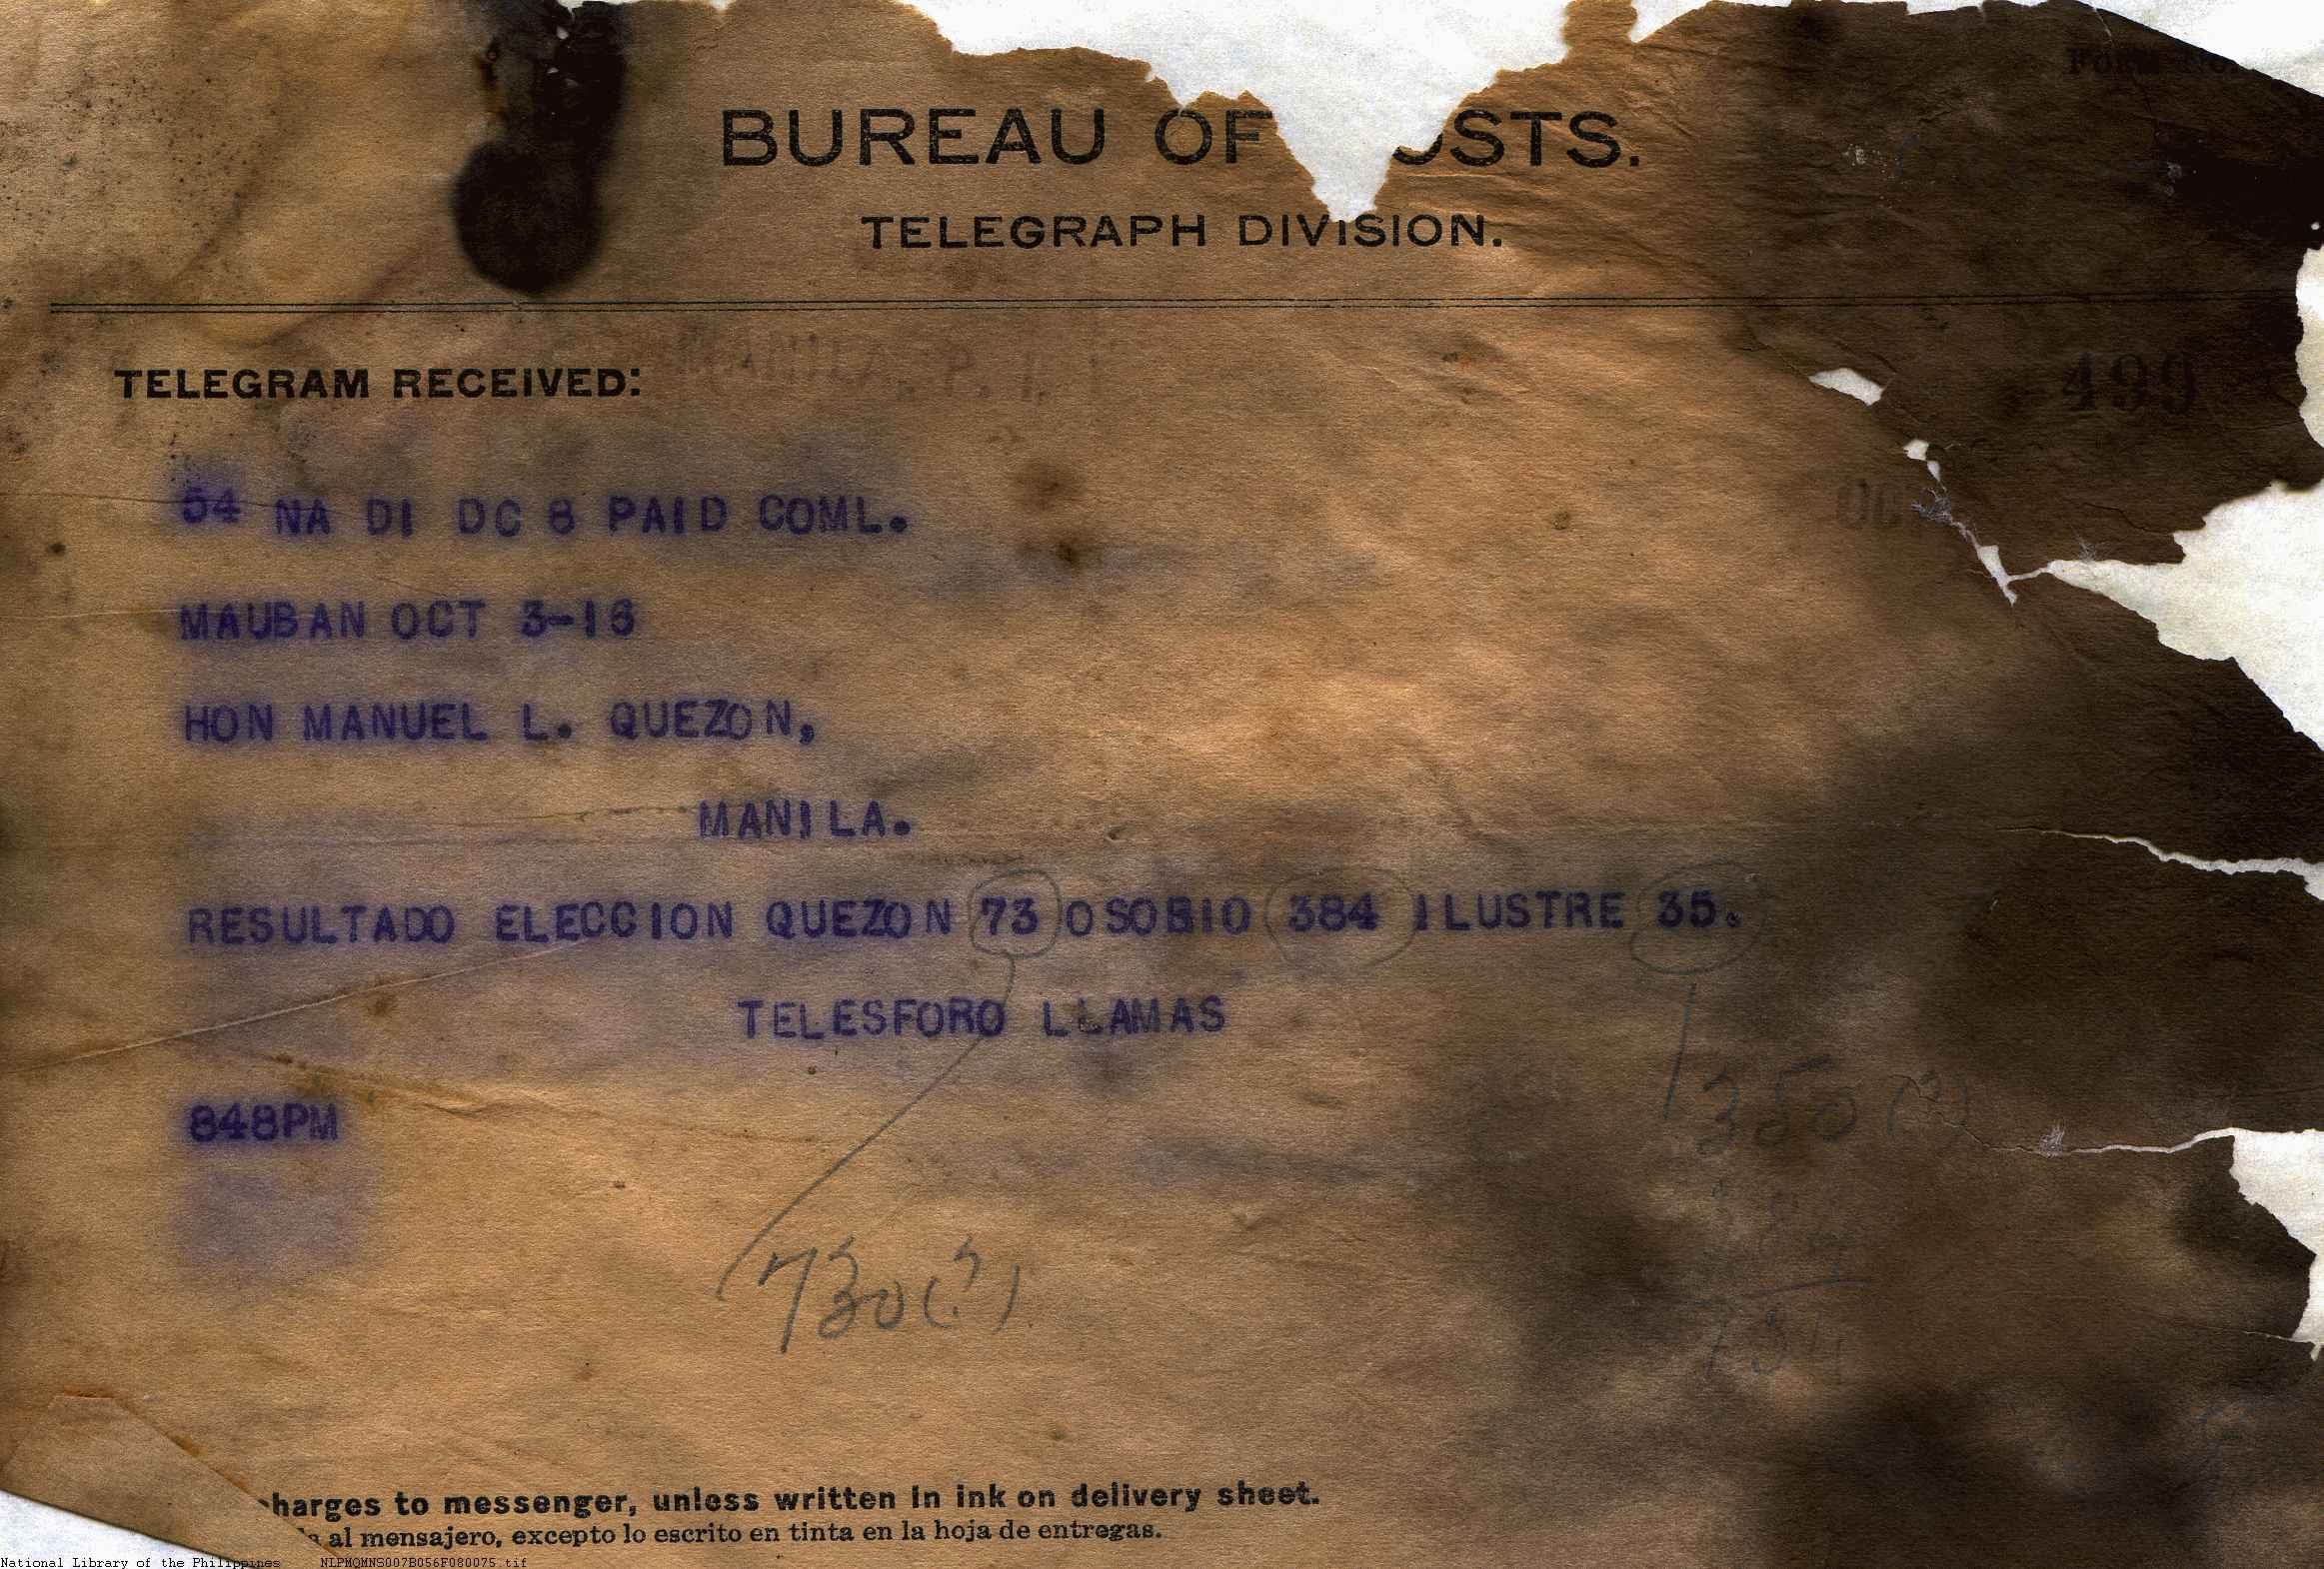 FORM NO.
BUREAU OF POSTS.
TELEGRAPH DIVISION.
MANILA, P. I.
TELEGRAM RECEIVED:
499
54 NA DI DC 8 PAID COML.
OC
MAUBAN OCT 3-16
HON MANUEL L. QUEZON,
MANILA.
RESULTADO ELECCION QUEZON 73 OSOBIO 384 ILUSTRE 35.
TELESFORO LLAMAS
848PM
350(?)
384
734
730(?)
harges to messenger, unless written in ink on delivery sheet.
al mensajero, excepto lo escrito en tinta en la hoja de entregas.
National Library of the Philippines NLPMQMNS007B056F080075.tif